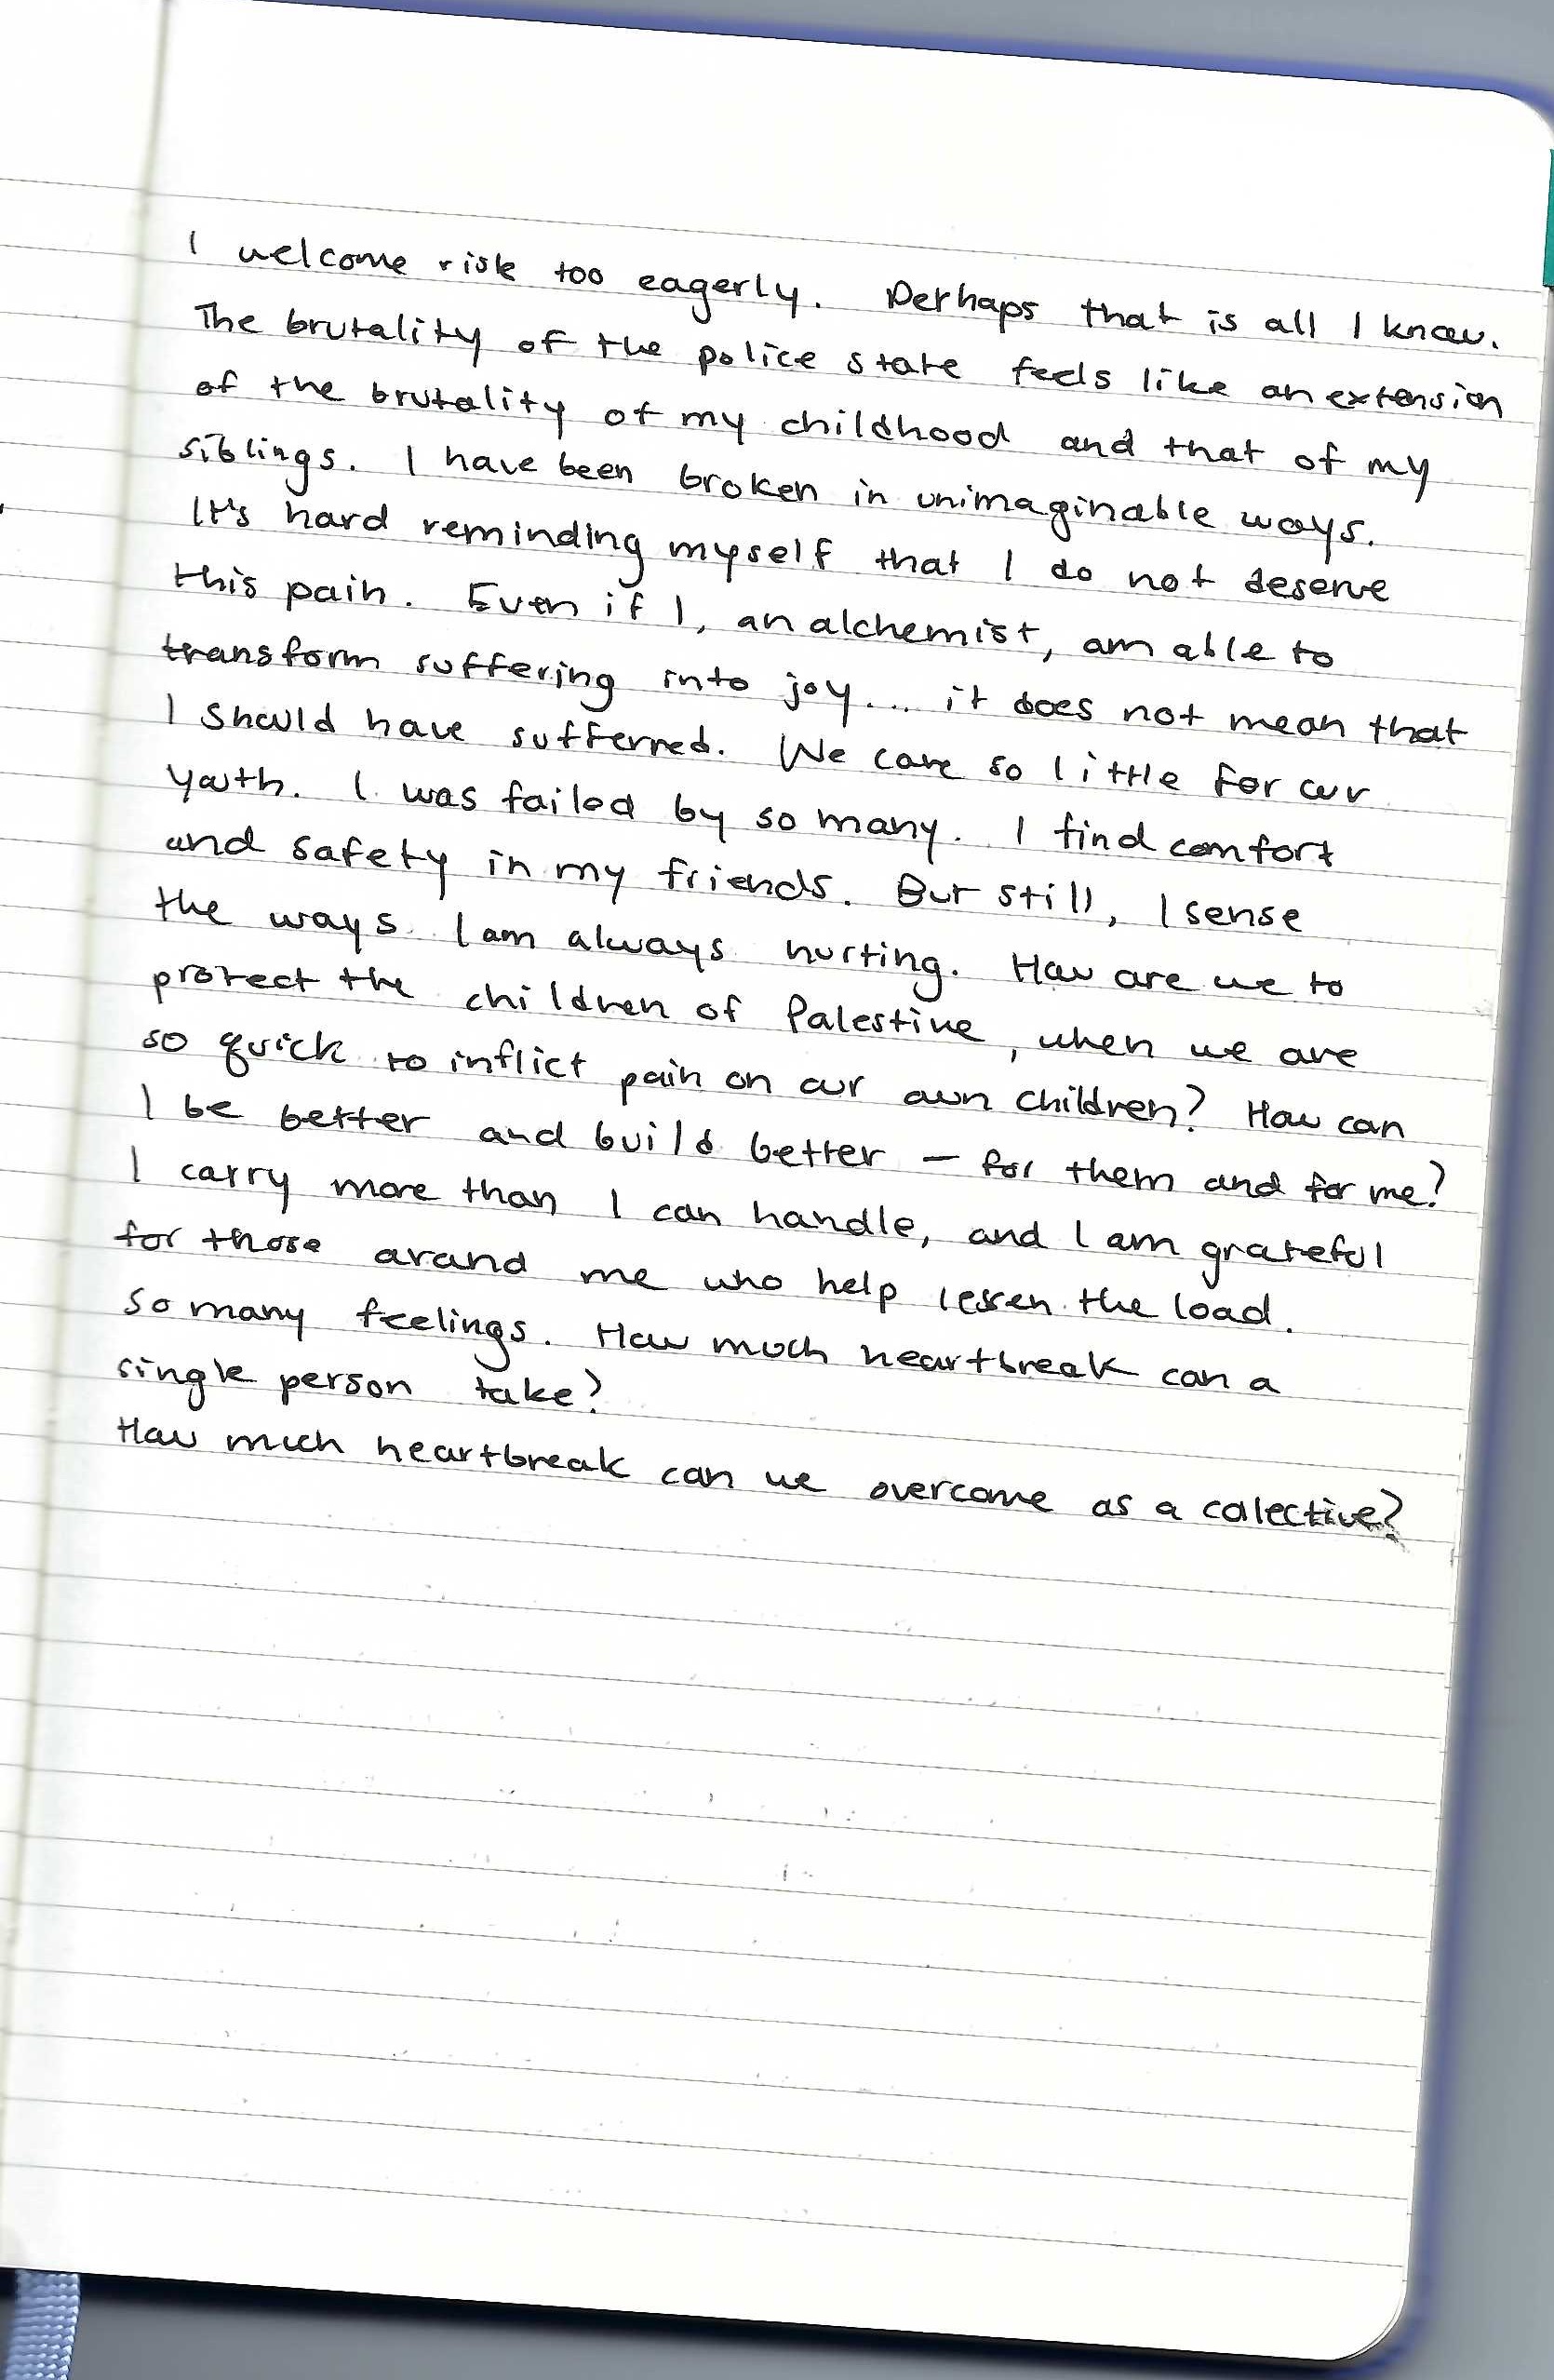 I welcome risk too eagerly. Perhaps that is all I know.
The brutality of the police state feels like an extension
of the brutality of my childhood and that of my
siblings. I have been broken in unimaginable ways.
It's hard reminding myself that I do not deserve
this pain. Even if I, an alchemist, am able to
transform suffering into joy... it does not mean that
I should have sufferred. We care so little for our
youth. I was failed by so many. I find comfort
and safety in my friends. But still, I sense
the ways I am always hurting. How are we to
protect the children of Palestine, when we are
so quick to inflict pain on our own children? How can
I be better and build better – for them and for me?
I carry more than I can handle, and I am grateful
for those around me who help lessen the load.
So many feelings. How much heartbreak can a
single person take?
How much heartbreak can we overcome as a collective?